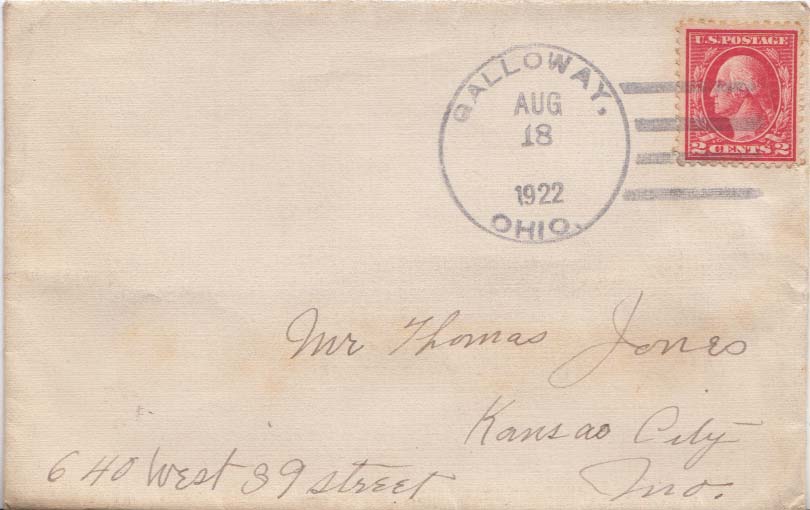 GALLOWAY,
AUG
18
1922
OHIO.
U.S. POSTAGE
2 CENTS 2
Mr Thomas Jones
Kansas City
640 West 39 street
Mo.